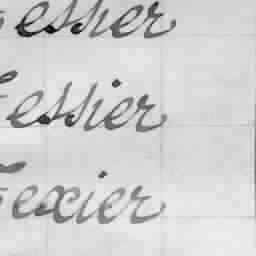 essier
essier
Texier